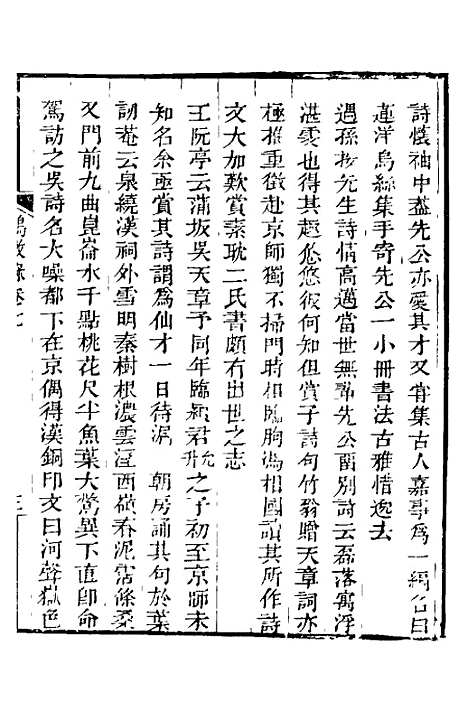 詩懷袖中蓋先公亦愛其才又嘗集古人嘉事為一編名曰
蓮洋烏絲集手寄先公一小冊書法古雅惜逸去
過孫按先生詩情高邁當世無比先公留別詩云磊落寓浮
湛雲也得其趣悠悠彼何知但賞子詩句竹翁贈天章詞亦
極推重徵赴京師獨不掃門時相臨朐馮相國讀其所作詩
文大加歎賞素耽二氏書頗有出世之志
王阮亭云蒲坂吳天章予同年臨潁君允升之子初至京師未
知名余亟賞其詩謂為仙才一日待漏 朝房誦其句於葉
訒菴云泉繞漢祠外雪明秦樹根濃雲溼西嶺春泥霑條桑
又門前九曲崑崙水千點桃花尺半魚葉大驚異下直即命
駕訪之吳詩名大噪都下在京偶得漢銅印文曰河聲嶽色
錄卷七
三